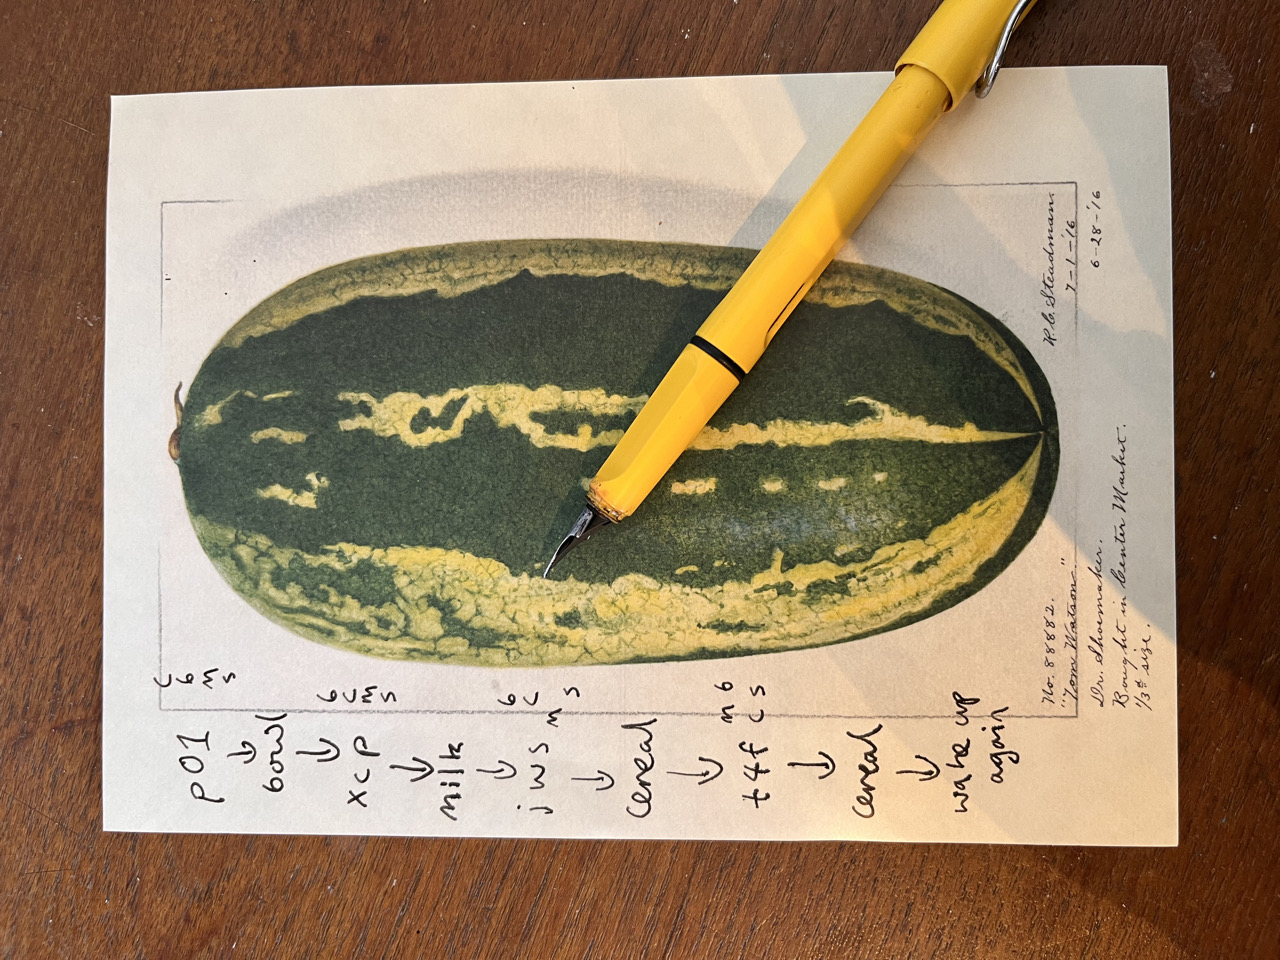 p01
↓
bowl
↓
xcp
↓
milk
↓
jws
↓
cereal
↓
t4f
↓
cereal
↓
wake up
again
c
b
m
s
b
c
m
s
b
c
m
s
m b
c s
No. 88882.
"Tom Watson"
Dr. Shoemaker.
Bought in Center Market.
1/3rd size.
R. C. Steadman.
7-1-'16
6-28-'16